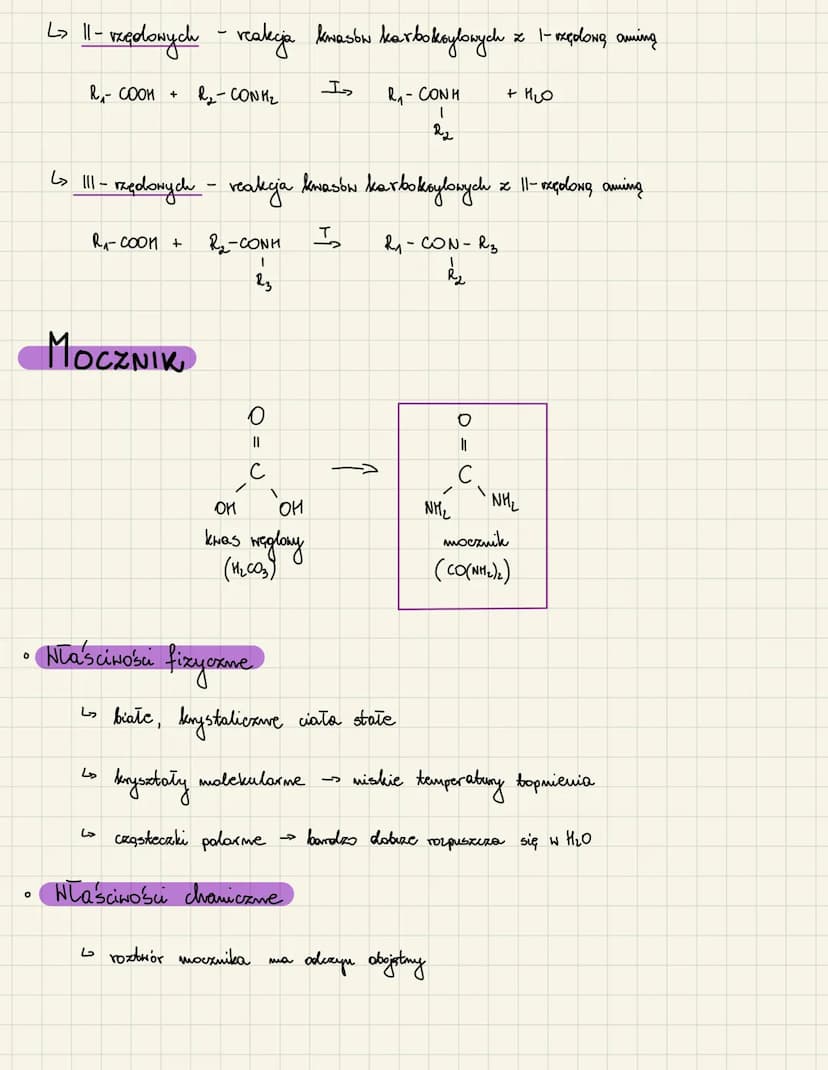 ↳ II-rzędowych - reakcja kwasów karboksylowych z I-rzędową aminą
R₁-COOH + R₂-CONH₂ T→ R₁-CONH + H₂O
|
R₂
↳ III-rzędowych - reakcja kwasów karboksylowych z II-rzędową aminą
R₁-COOH + R₂-CONH T→ R₁-CON-R₃
| |
R₃ R₂
MOCZNIK
O O
|| ||
C → C
OH OH NH₂ NH₂
kwas węglowy mocznik
(H₂CO₃) (CO(NH₂)₂)
• Właściwości fizyczne
↳ białe, krystaliczne ciała stałe
↳ kryształy molekularne → niskie temperatury topnienia
↳ cząsteczki polarne → bardzo dobrze rozpuszcza się w H₂O
• Właściwości chemiczne
↳ roztwór mocznika ma odczyn obojętny